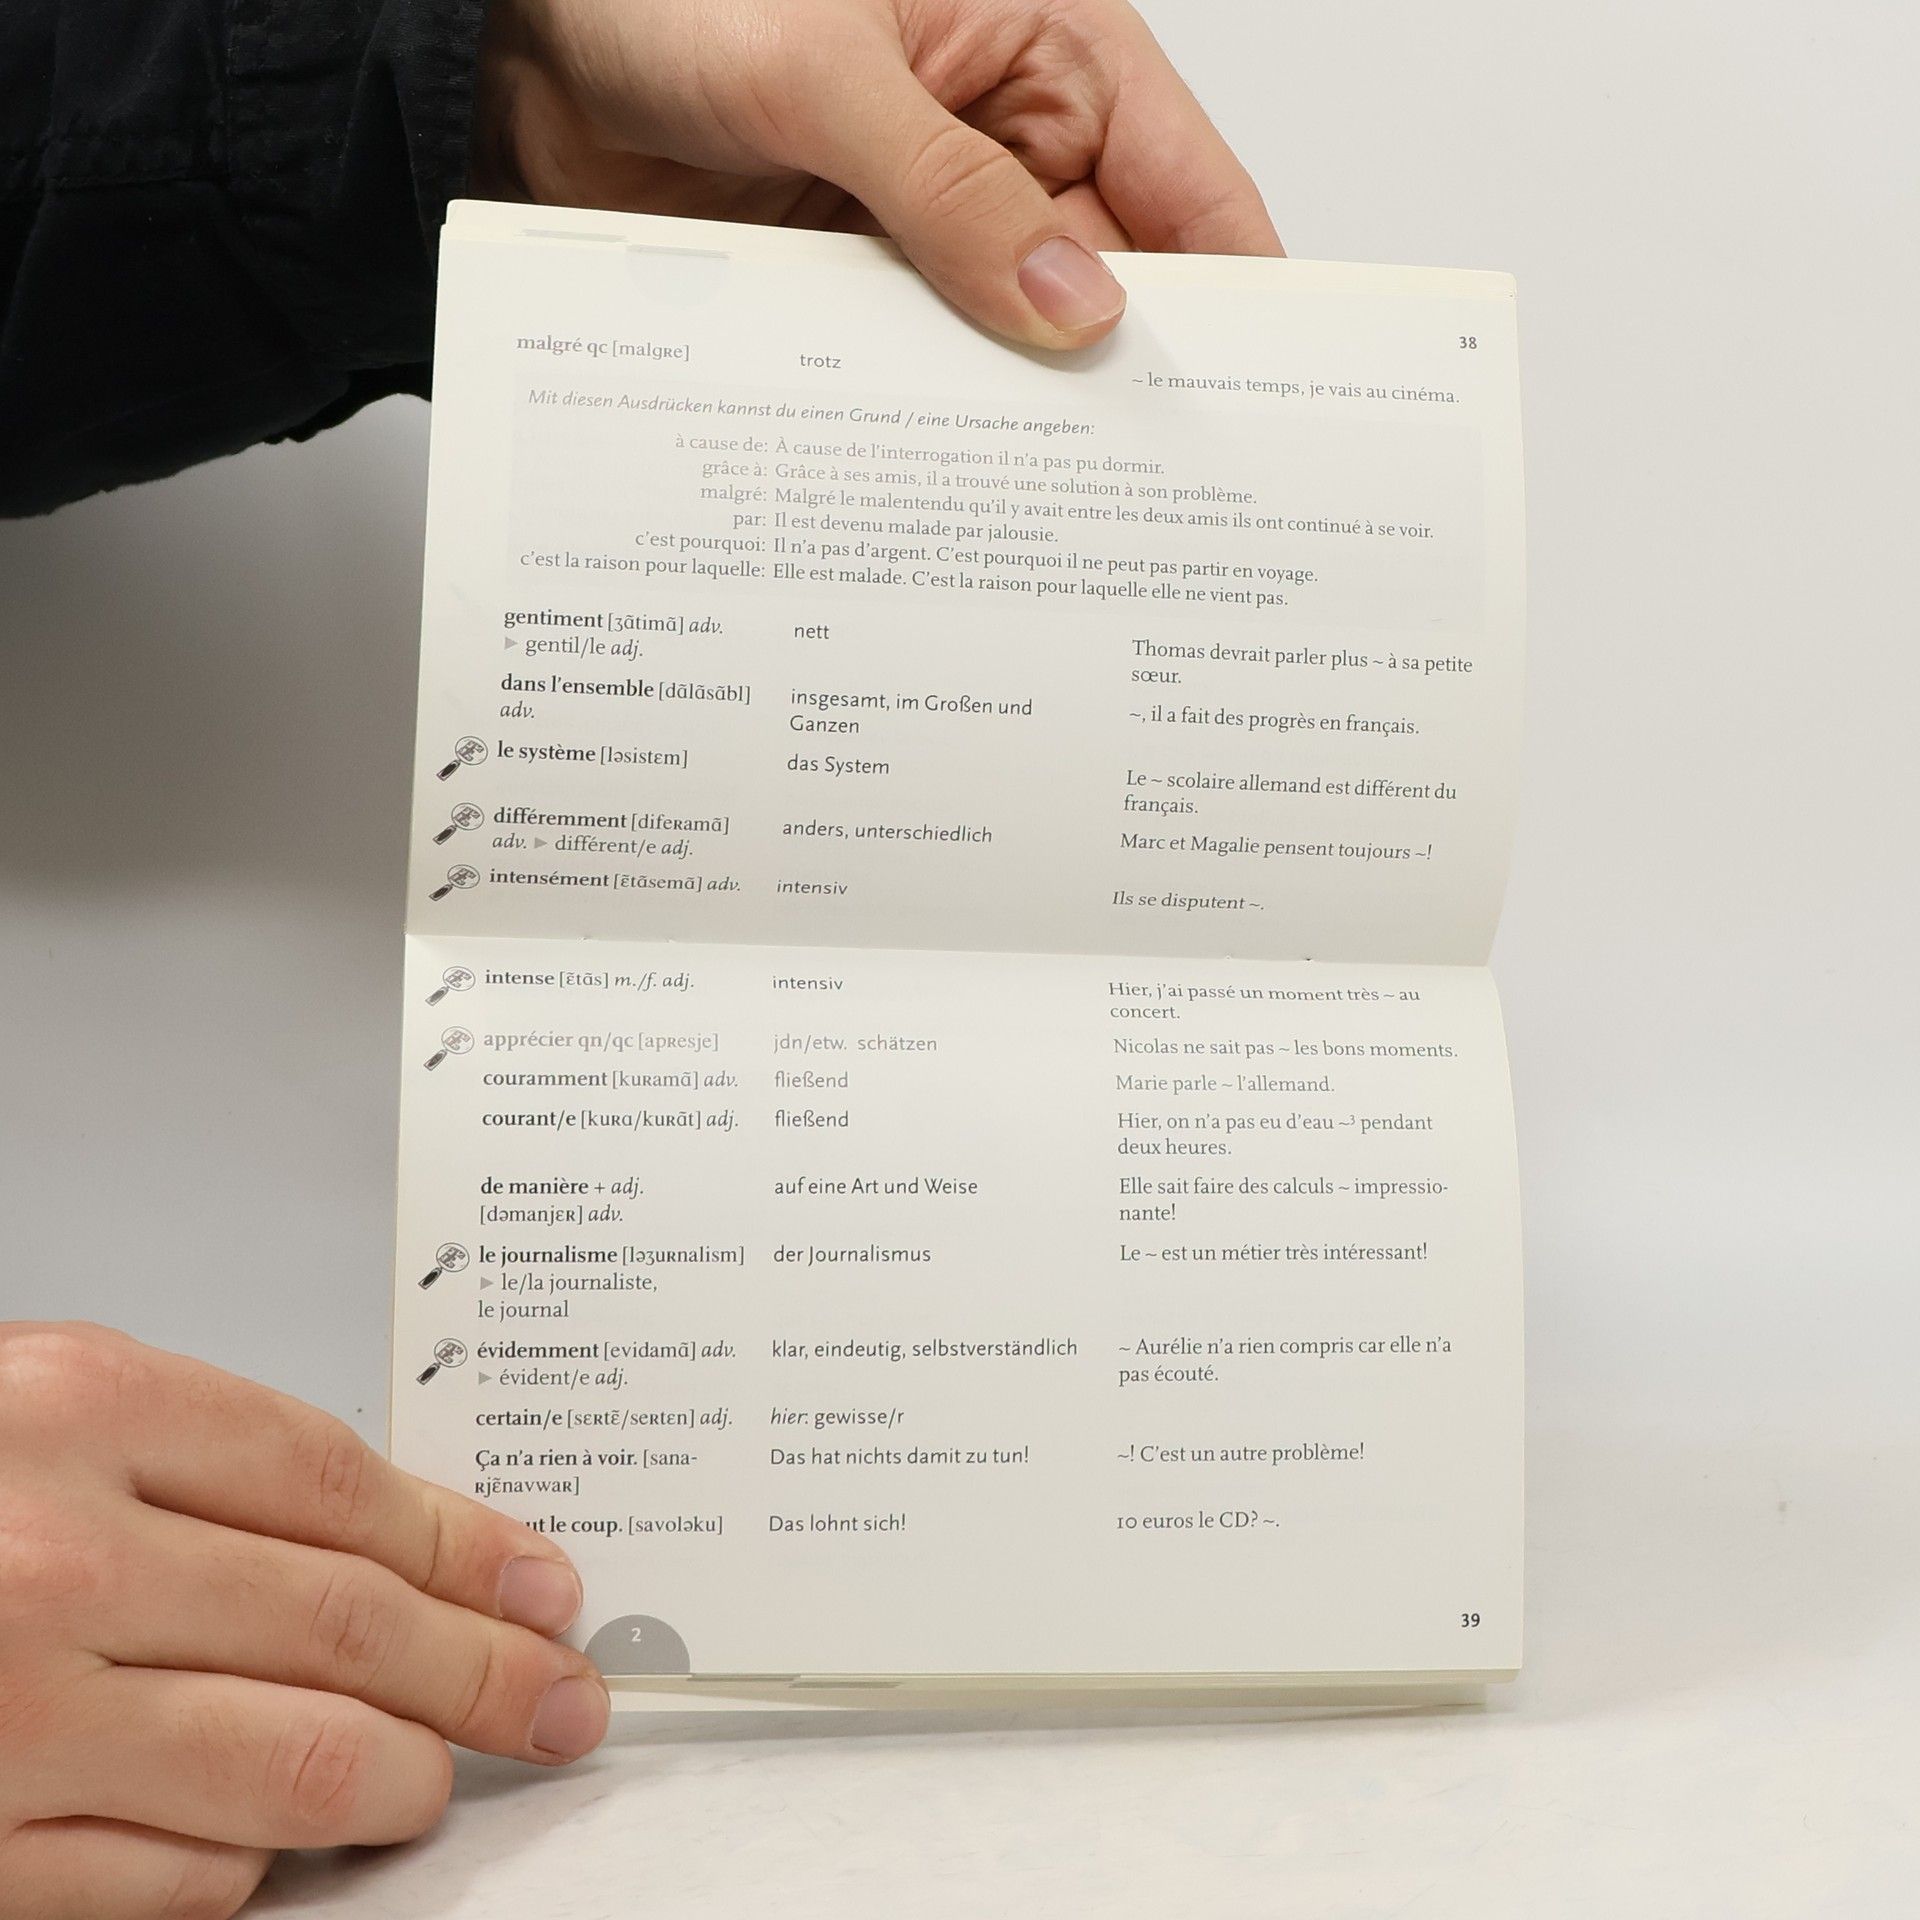 38
malgré qc [malgʀe] trotz ~ le mauvais temps, je vais au cinéma.
Mit diesen Ausdrücken kannst du einen Grund / eine Ursache angeben:
à cause de: À cause de l'interrogation il n'a pas pu dormir.
grâce à: Grâce à ses amis, il a trouvé une solution à son problème.
malgré: Malgré le malentendu qu'il y avait entre les deux amis ils ont continué à se voir.
par: Il est devenu malade par jalousie.
c'est pourquoi: Il n'a pas d'argent. C'est pourquoi il ne peut pas partir en voyage.
c'est la raison pour laquelle: Elle est malade. C'est la raison pour laquelle elle ne vient pas.
gentiment [ʒɑ̃timɑ̃] adv. nett Thomas devrait parler plus ~ à sa petite
▶ gentil/le adj. sœur.
dans l'ensemble [dɑ̃lɑ̃sɑ̃bl] insgesamt, im Großen und ~, il a fait des progrès en français.
adv. Ganzen
le système [ləsistɛm] das System Le ~ scolaire allemand est différent du
français.
différemment [difeʀamɑ̃] anders, unterschiedlich Marc et Magalie pensent toujours ~!
adv. ▶ différent/e adj.
intensément [ɛ̃tɑ̃semɑ̃] adv. intensiv Ils se disputent ~.
intense [ɛ̃tɑ̃s] m./f. adj. intensiv Hier, j'ai passé un moment très ~ au
concert.
apprécier qn/qc [apʀesje] jdn/etw. schätzen Nicolas ne sait pas ~ les bons moments.
couramment [kuʀamɑ̃] adv. fließend Marie parle ~ l'allemand.
courant/e [kuʀɑ/kuʀɑ̃t] adj. fließend Hier, on n'a pas eu d'eau ~³ pendant
deux heures.
de manière + adj. auf eine Art und Weise Elle sait faire des calculs ~ impressio-
[dəmanjɛʀ] adv. nante!
le journalisme [ləʒuʀnalism] der Journalismus Le ~ est un métier très intéressant!
▶ le/la journaliste,
le journal
évidemment [evidamɑ̃] adv. klar, eindeutig, selbstverständlich ~ Aurélie n'a rien compris car elle n'a
▶ évident/e adj. pas écouté.
certain/e [sɛʀtɛ̃/seʀtɛn] adj. hier: gewisse/r
Ça n'a rien à voir. [sana- Das hat nichts damit zu tun! ~! C'est un autre problème!
ʀjɛ̃navwaʀ]
le coup. [savoləku] Das lohnt sich! 10 euros le CD? ~.
2
39